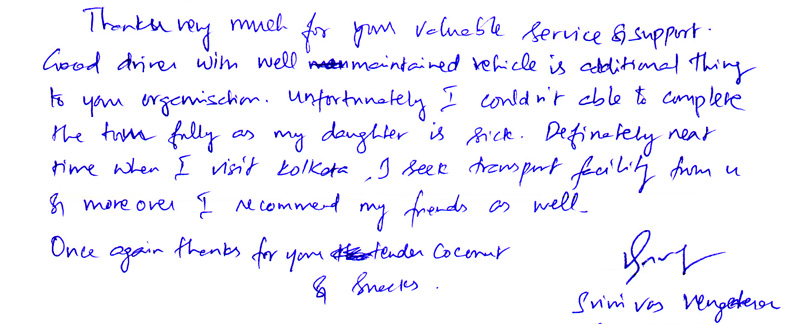 Thanks very much for your valuable service & support.
Good driver with well maintained vehicle is additional thing
to your organisation. Unfortunately I couldn't able to complete
the tour fully as my daughter is sick. Definately next
time when I visit Kolkata, I seek transport facility from u
& more over I recommend my friends as well.
Once again thanks for your tender coconut
& snacks.
Srinivas